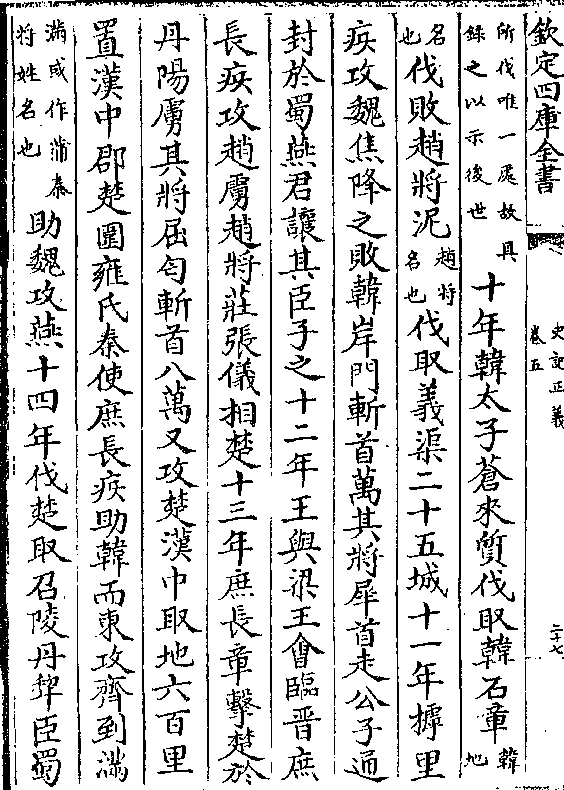 欽定四庫全書
史記正義
卷五
二十七
所伐唯一處故具錄之以示後世十年韓太子蒼來質伐取韓石章韓地
名也伐敗趙將泥趙將名也伐取義渠二十五城十一年摢里
疾攻魏焦降之敗韓岸門斬首萬其將犀首走公子通
封於蜀燕君讓其臣子之十二年王與梁王會臨晉庶
長疾攻趙虜趙將莊張儀相楚十三年庶長章擊楚於
丹陽虜其將屈匄斬首八萬又攻楚漢中取地六百里
置漢中郡楚圍雍氏秦使庶長疾助韓而東攻齊到滿
滿或作蒲秦將姓名也助魏攻燕十四年伐楚取召陵丹犂臣蜀